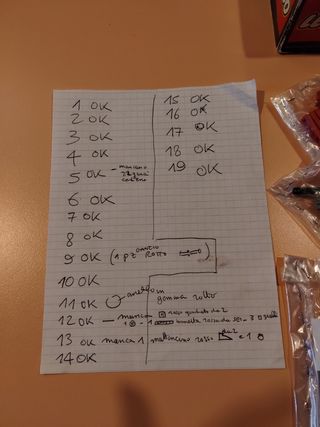 1 OK
2 OK
3 OK
4 OK
5 OK - mancano
catene
6 OK
7 OK
8 OK
9 OK (1 pz GANCIO ROTTO)
10 OK
11 OK anello in
gomma rotto
12 OK — manca rosso quadrato da 2
13 OK manca 1 mattoncino rosso da 2 e 1
14 OK
15 OK
16 OK
17 OK
18 OK
19 OK